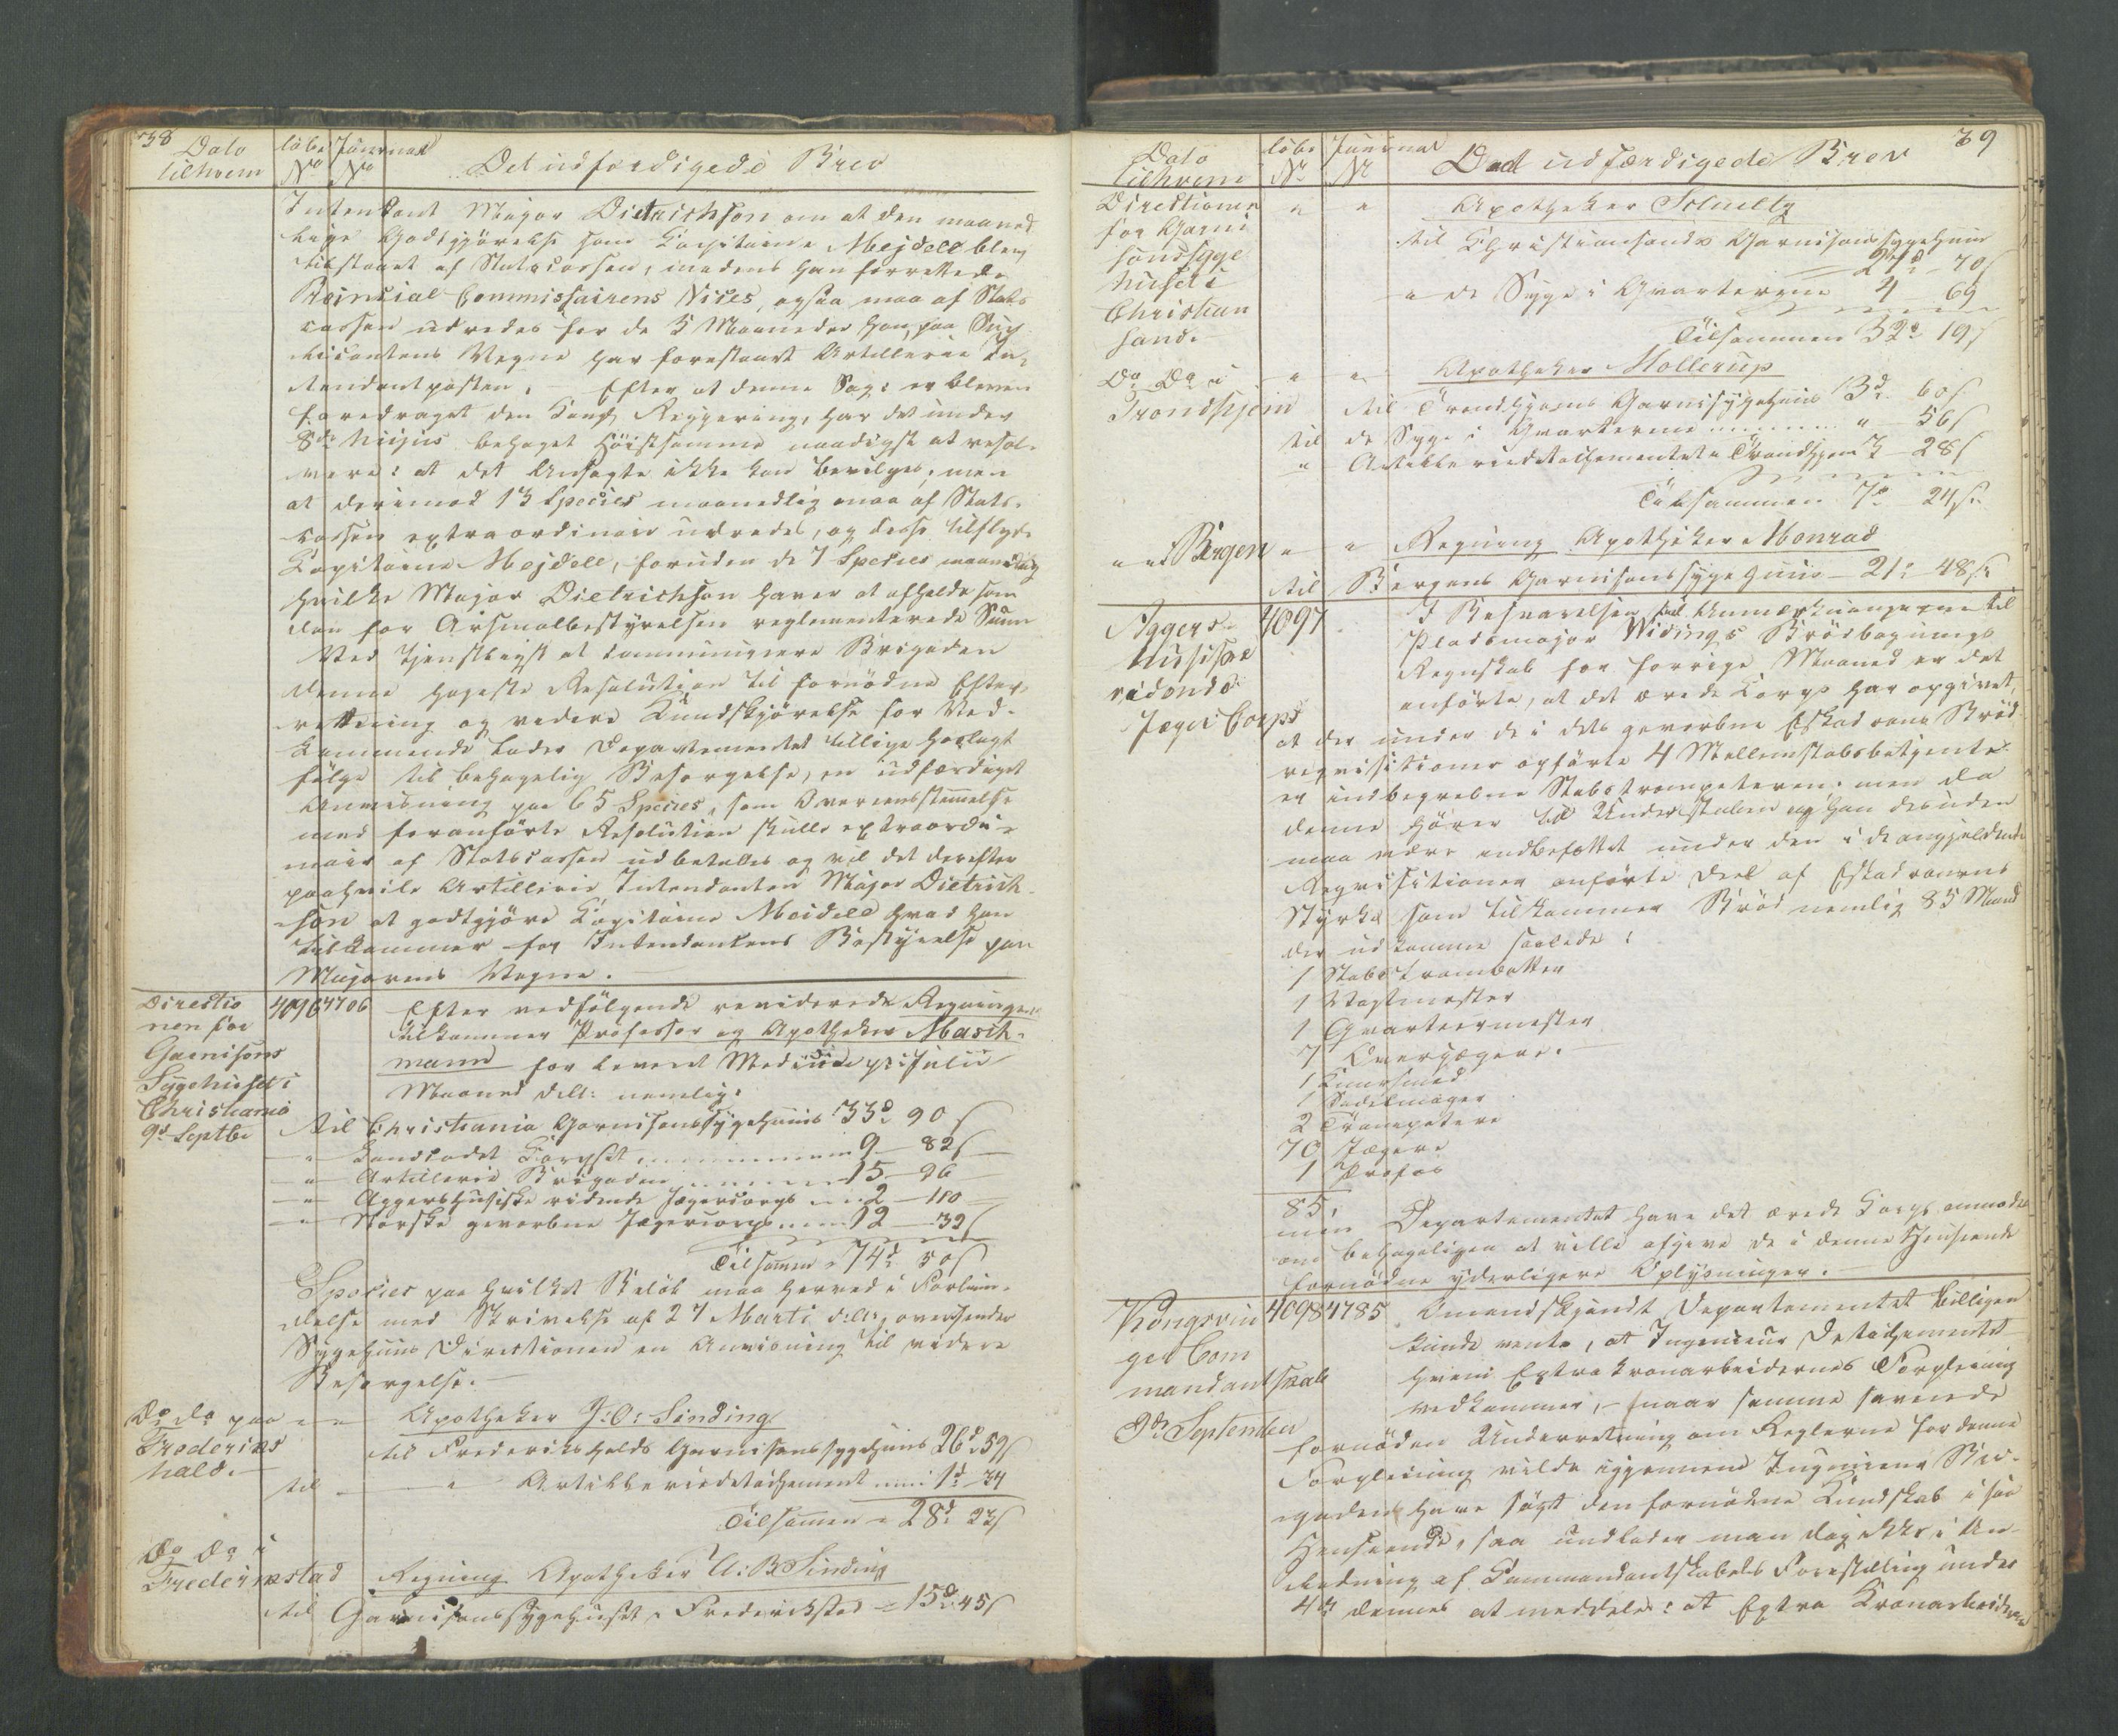 38
Dato
tilhvem
löbe
No
Journal
No
Det udfærdigede Brev
Intendant Major Dietrichson om at den maaned
lige Godtgjörelse som Capitaine Mejdell blev
tilstaaet af Statscassen, medens han forrettede
Provincial Commissairens Vices, ogsaa maa af Stats
cassen udredes for de 5 Maaneder han, paa Sup
plicantens Vegne har forestaaet Artillerie In-
tendantposten. – Efter at denne Sag er bleven
foredraget den Kongl. Regjering, har det under
8de hujus behaget Höistsamme naadigst at resol-
vere: at det Ansøgte ikke kan bevilges, men
at derimod 13 Species maanedlig maa af Stats-
cassen extraordinair udredes, og disse tilflyde
Capitaine Mejdell, foruden de 7 Species maanedlig
hvilke Major Dietrichson haver at afholde som
den for Arsenalbestyrelsen reglementerede Sum
Ved tjenstligst at communicere Brigaden
denne høieste Resolution til fornødne Efter-
retning og videre Kundskjörelse for Ved-
kommende lader Departementet tillige hoslagt
fölge til behagelig Besørgelse, en udfærdiget
Anviisning paa 65 Species, som Overeensstemmelse
med foranførte Resolution skulle extraordi-
nair af Statscassen udbetales og vil det derefter
paahvile Artillerie Intendanten Major Dietrich-
son at godtgjöre Capitaine Meidell hvad han
tilkommer for Intendantens Bestyrelse paa
Majorens Vegne.
Directio
nen for
Garnisons
Sygehuset i
Christiania
9d Septbr
4096
4706
Efter vedfölgende reviderede Regninger
tilkommer Professor og Apotheker Masch-
mann for leveret Medicin pr: Julii
Maaned dette: nemlig:
til Christania Garnisonssygehuus 33d 90 s
– " – Landcadet Corpset 9 – 82 s
– " – Artillerie Brigaden 15 – 26
– " – Aggershusiske ridende Jægercorps 2 – 110
– " – Norske gevorbne Jægercorps 12 – 32 s
Tilsamm = 74d 50 s
Species paa hvilket Beløb maa herved i Forbin-
delse med Skrivelse af 27 Marti d: A:, oversendes
Sygehuus Directionen en Anviisning til videre
Besørgelse. –
Do do paa
Frederiks
hald. –
" "
Apotheker J: O: Sinding
til Frederikshalds Garnisonssygehuus 26d 59 s
til – " – Artilleriedetachement 1d – 34
Tilsammen = 28d 23 s
Do Do i
Frederikstad
Regning Apotheker U: B Sinding
til Garnisonssygehuset i Frederikstad = 15d 45 s
39
Dato
tilhvem
löbe
Nr
Journal
Nr
Dad udfærdigede Brev
Directionen
for Garni
sonssyge
huset i
Christian
sand. –
" "
Apotheker
til Christiansands Garnisonssygehuus
27d – 70 s
" de Syge i Qvartererne 4 69
Tilsammen 32d 19 s
Do Do i
Trondhjem
" "
Apotheker Mollerup
til Trondhjems Garnisygehuus 3d. 60 s.
til de Syge i Qvartererne " – 56 s
" Artilleriedetachementet i Trondhjem 3 – 28 s
Tilsammen 7d 24 s.
" " Bergen " "
Regning Apotheker Monrad
til Bergens Garnisonssygehuus – 21: 48 s:
Aggers-
husiske
ridende
Jæger Corps
4097
I Besvarelsen paa Anmærkningerne til
Pladsmajor Widings Brödbagnings
Regnskab for forrige Maaned er det
anförte, at det ærede Corps har opgivet,
at der under de i dets gevorbne Eskadrons Bröd
reqvisitioner opførte 4 Mellemstabsbetjente
er indbegreben Stabstrompeteren: men da
denne hører til Understaben og han desuden
maa være indbefattet under den i de angjeldende
Reqvisitioner anførte Deel af Eskadronens
Styrke som tilkommer Bröd nemlig 85 Mand
der udkomme saaledes:
1 Stabstrompetter
1 Vagtmester
1 Qvarteermester
7 Overjægere. –
1 Kuursmed
1 Sadelmager
2 Trompetere
70 Jægere
1 Profos
85,
men Departementet have det ærede Corps anmodet
om behageligen at ville afgive de i denne Henseende
fornødne yderligere Oplysninger. –
Kongsvin
ger Com
mandantskab
9de September
4098
4785
Omendskjöndt Departementet billigen
kunde vente, at Ingenieur Detachementet
hvem Extra Kronarbeidernes Forpleining
vedkommer, – naar samme savnede
fornøden Underretning om Reglerne for denne
Forpleining vilde igjennem Ingenieur Bri-
gaden have søgt den fornødne Kundskab i saa
Henseende, saa undlader man dog ikke i An-
ledning af Commandantskabets Forestilling under
4de dennes at meddele: at Extra Kronarbeiderne